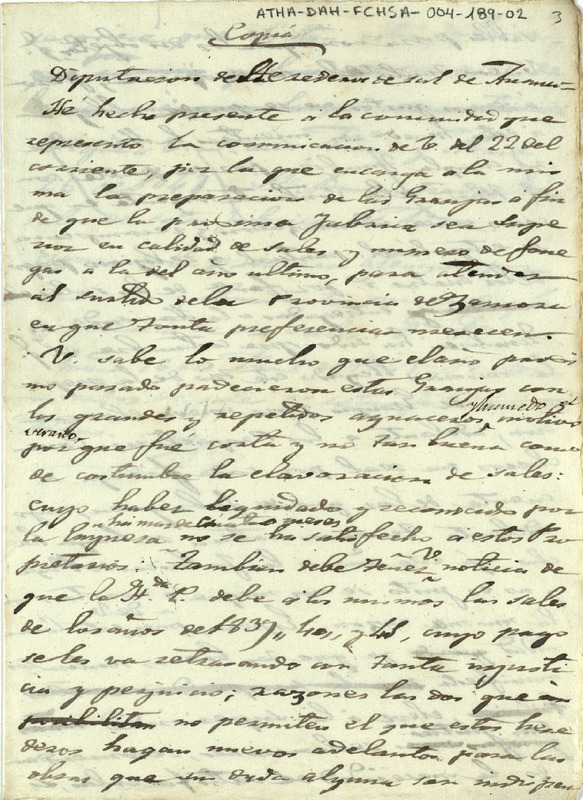 ATHA-DAH-FCHSA-004-189-02
3
Copia
Diputacion de Herederos de sal de Añana=
Hé hecho presente á la comunidad que
represento la comunicacion de V. del 22 del
corriente, por la que encarga a la mis
ma la preparacion de las Granjas á fin
de que la proxima fabrica sea supe
rior en calidad de sales y numero de fane
gas á la del año ultimo, para atender
al surtido de la Provincia de Zamora
en que tanta preferencia merecen.
V. sabe lo mucho que el año proxi
mo pasado padecieron estas Granjas con
los grandes y repetidos aguaceros, motivo
y humedo
verano
por que fué corta y no tan buena como
de costumbre la elavoracion de sales:
cuyo haber liquidado y reconocido por
há mas de cuatro meses
la Empresa no se ha satisfecho á estos Pro
pietarios. Tambien debe tener V. noticia de
que la H.da P. debe á los mismos las sales
de los años de 1839,, 40,, y 41, cuyo pago
se les va retrasando con tanta injusti
cia y perjuicio; razones las dos que
no permiten el que estos here
deros hagan nuevos adelantos para las
obras que sin duda alguna son indispen